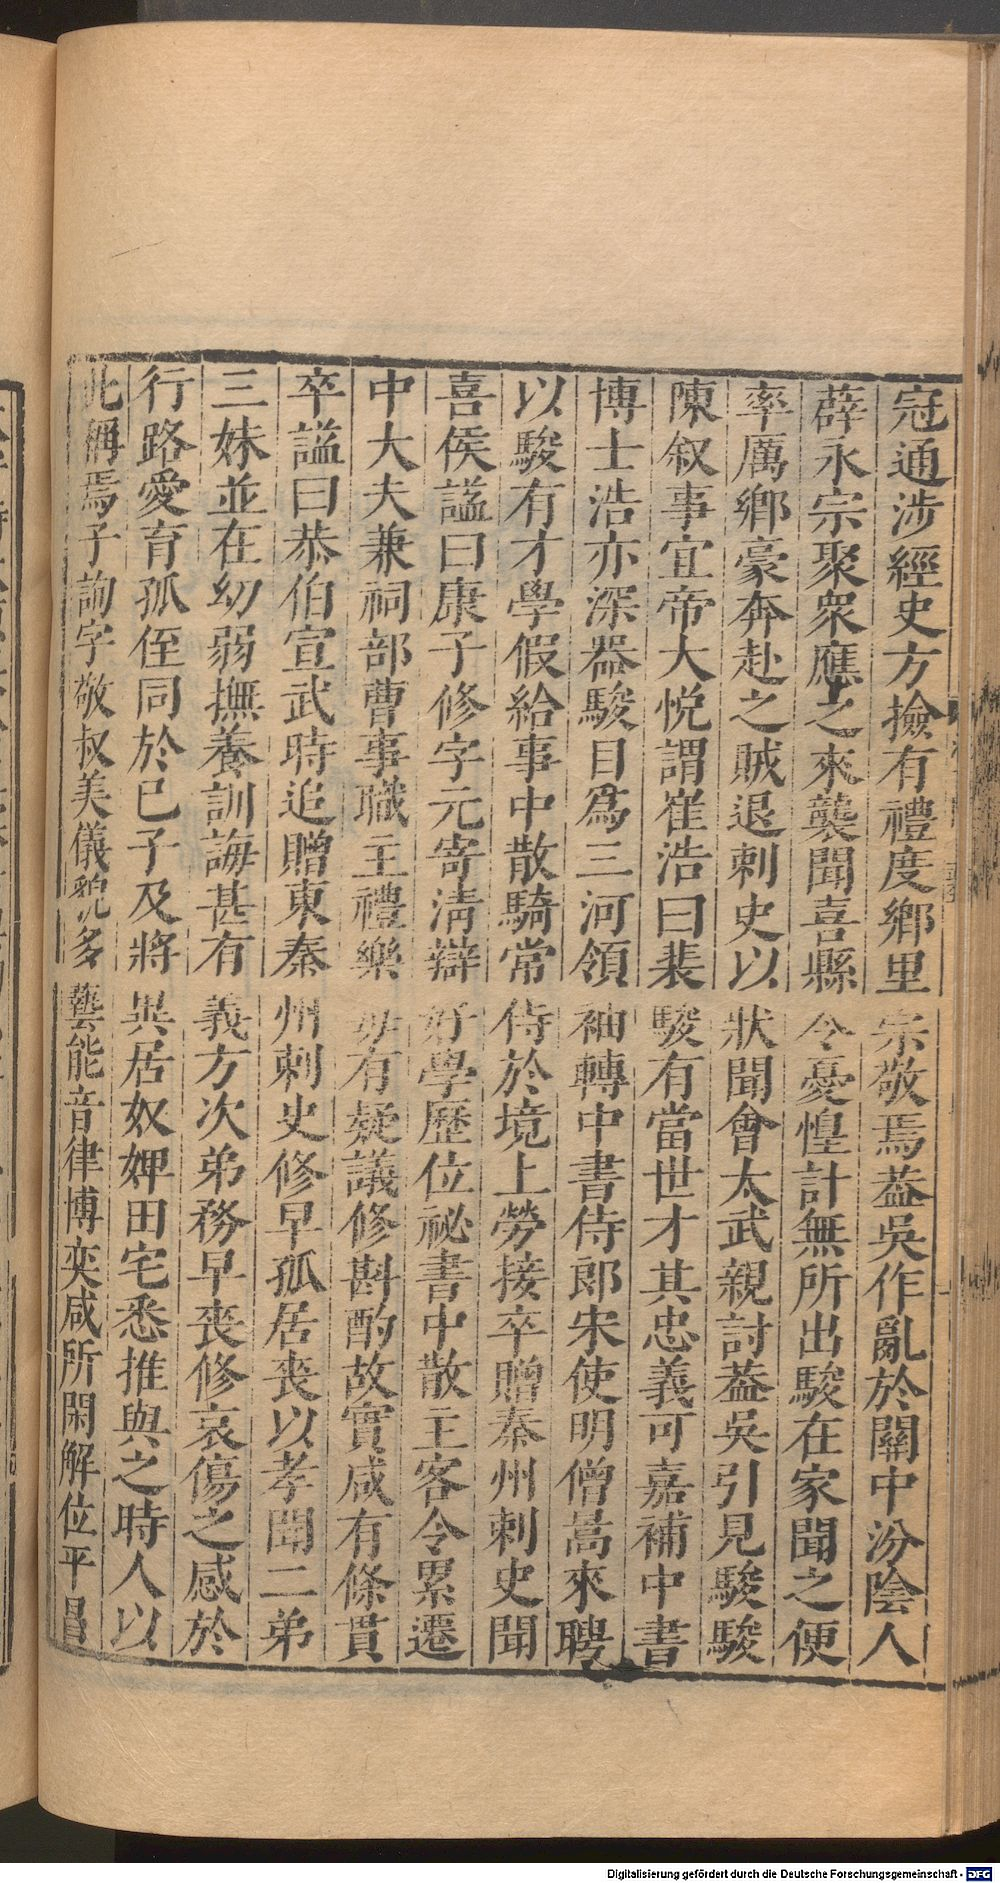 冠通涉經史方撿有禮度鄉里宗敬焉葢吳作亂於關中汾陰人
薛永宗聚衆應之來襲聞喜縣令憂惶計無所出駿在家聞之便
率厲鄉豪奔赴之賊退刺史以狀聞會太武親討葢吳引見駿駿
陳叙事宜帝大悅謂崔浩曰裴駿有當世才其忠義可嘉補中書
博士浩亦深器駿目爲三河領袖轉中書侍郎宋使明僧暠來聘
以駿有才學假給事中散騎常侍於境上勞接卒贈秦州刺史聞
喜侯謚曰康子修字元寄清辯好學歷位祕書中散主客令累遷
中大夫兼祠部曹事職主禮樂毎有疑議修斟酌故實咸有條貫
卒謚曰恭伯宣武時追贈東秦州刺史修早孤居喪以孝聞二弟
三妹並在幼弱撫養訓誨甚有義方次弟務早喪修哀傷之感於
行路愛育孤侄同於己子及將異居奴婢田宅悉推與之時人以
此稱焉子詢字敬叔美儀貌多藝能音律博奕咸所閑解位平昌
Digitalisierung gefördert durch die Deutsche Forschungsgemeinschaft - DFG